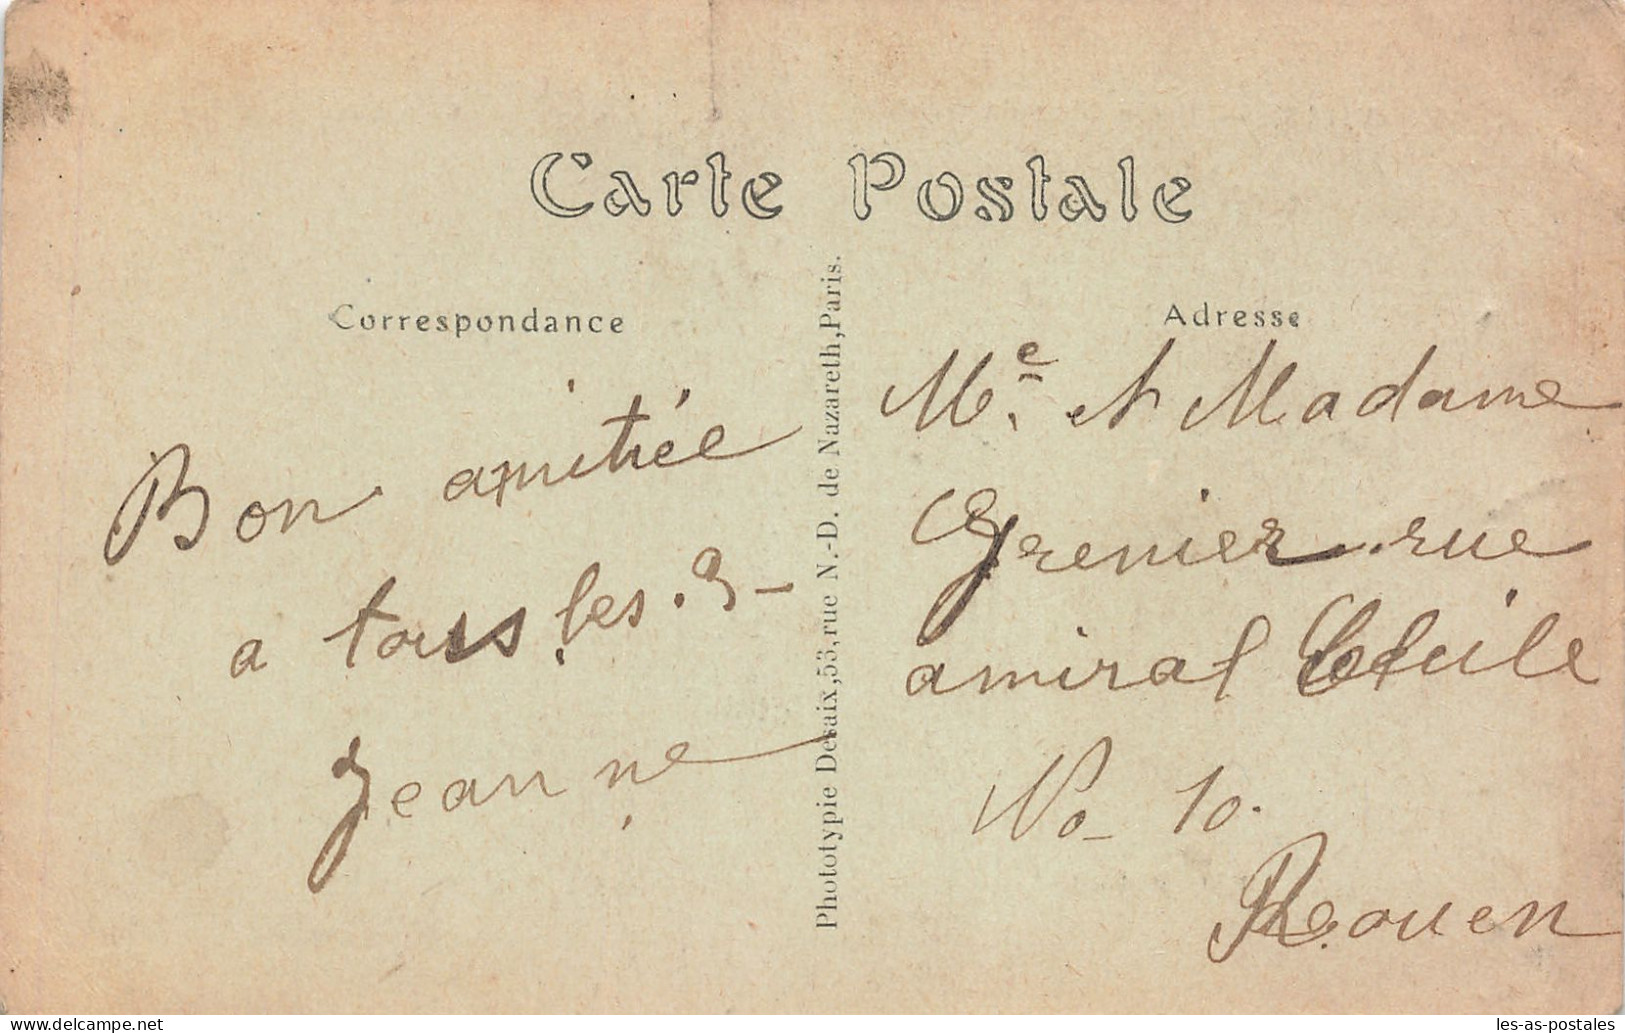 Carte Postale
Correspondance
Bon amitiée
a tous les 3 -
Jeanne
Phototypie Desaix, 53, rue N.-D. de Nazareth, Paris.
Adresse
Me. et Madame
Grenier. rue
amiral Cécile
No - 10.
Rouen
les-as-postales
www.delcampe.net